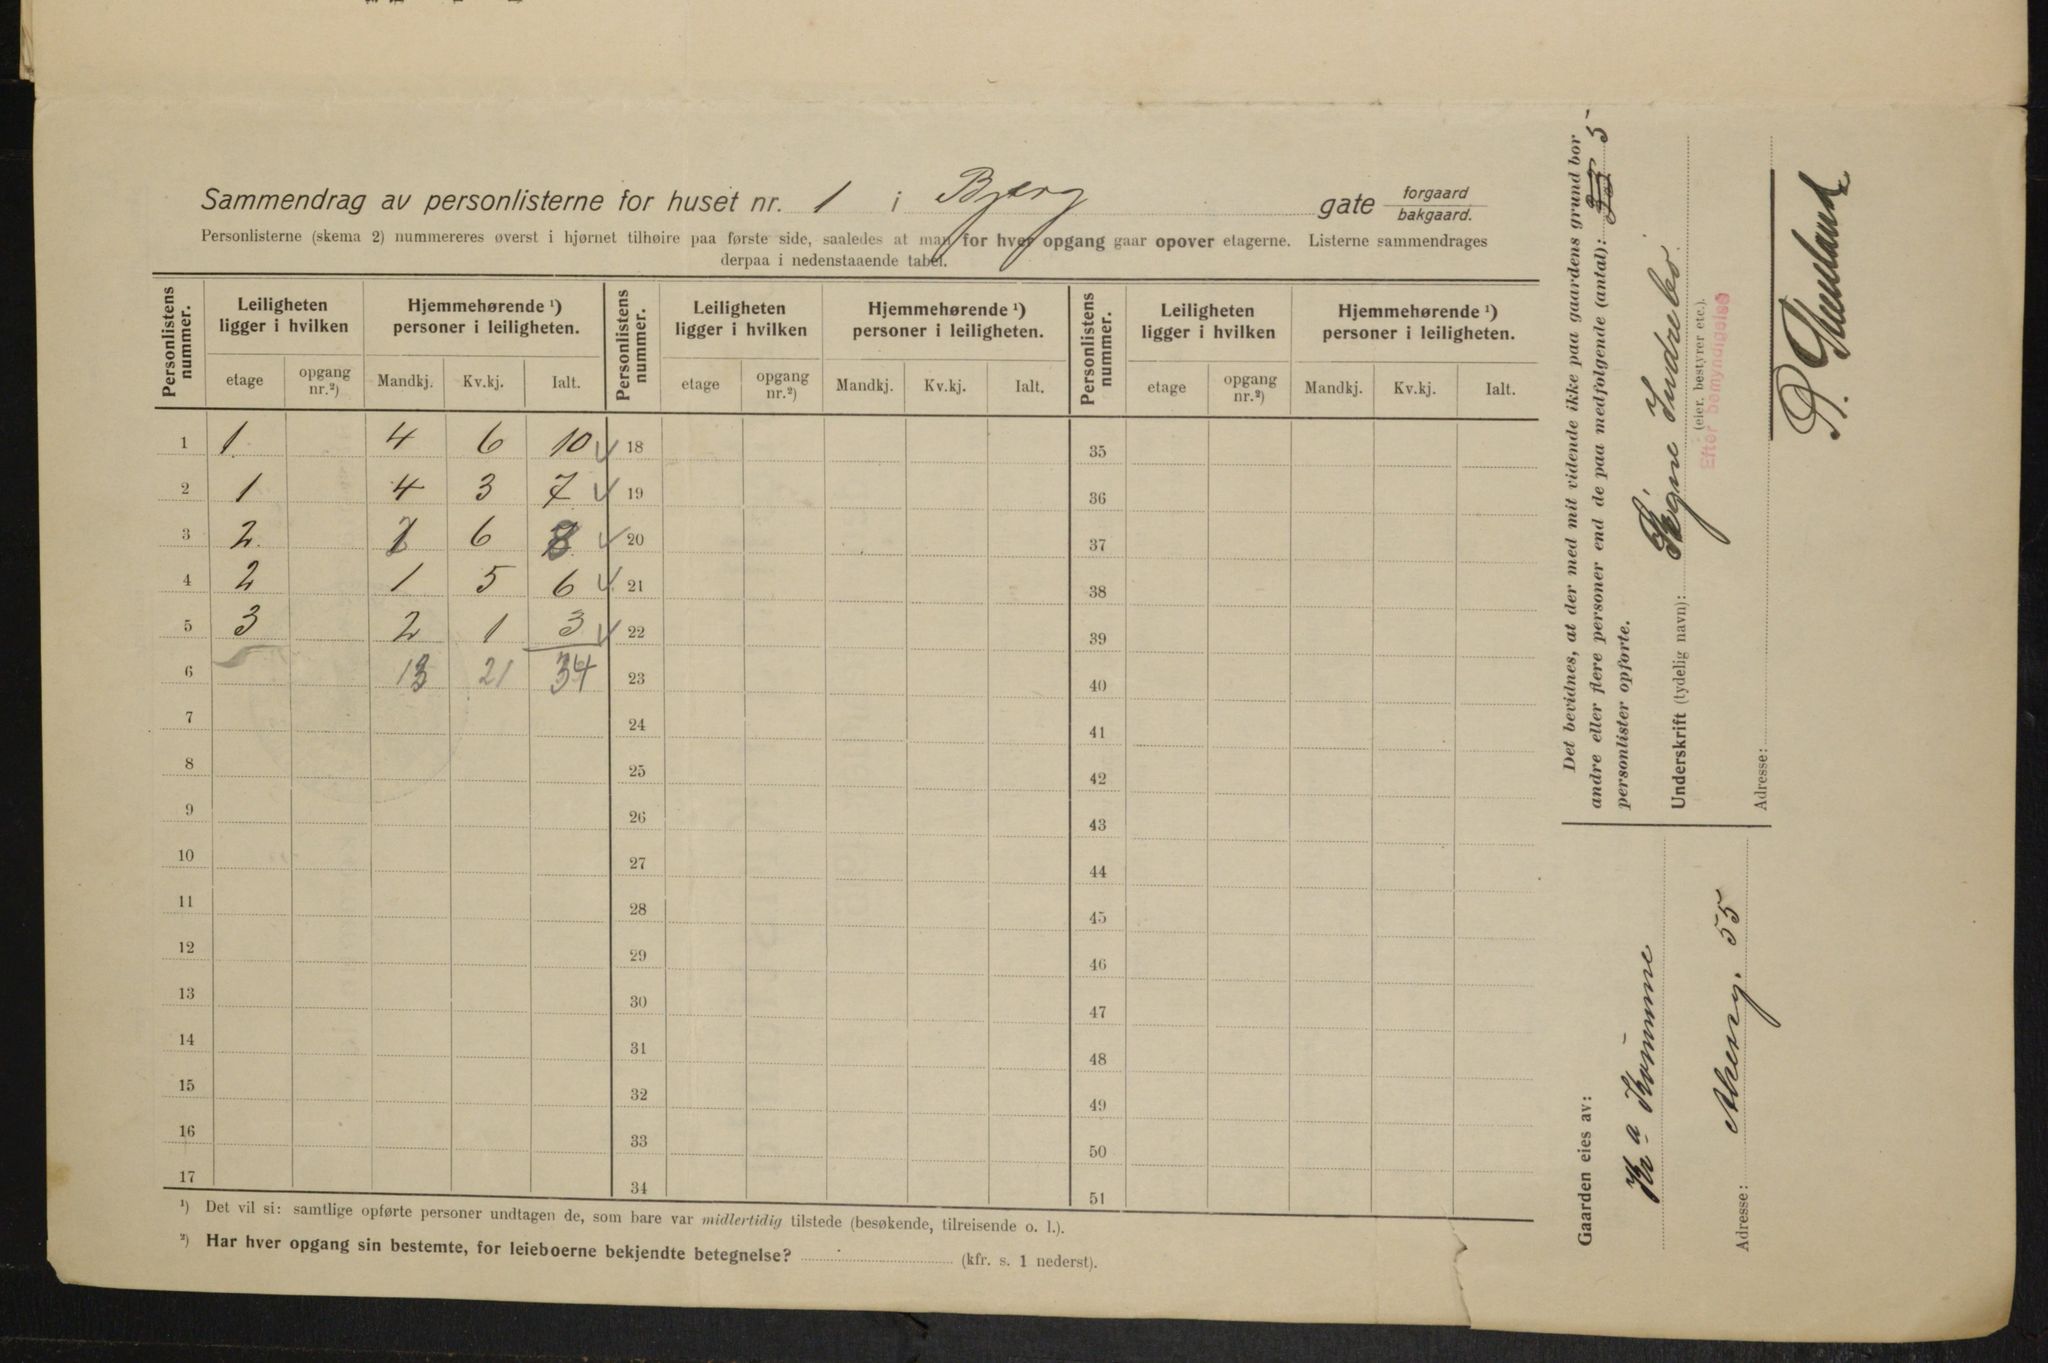 Sammendrag av personlisterne for huset nr. 1 i Bjerg gate forgaard bakgaard.
Personlisterne (skema 2) nummereres øverst i hjørnet tilhøire paa første side, saaledes at man for hver opgang gaar opover etagerne. Listerne sammendrages
derpaa i nedenstaaende tabel.
Personlistens nummer. Leiligheten ligger i hvilken Hjemmehørende ¹) personer i leiligheten. Personlistens nummer. Leiligheten ligger i hvilken Hjemmehørende ¹) personer i leiligheten. Personlistens nummer. Leiligheten ligger i hvilken Hjemmehørende ¹) personer i leiligheten.
etage opgang nr.²) Mandkj. Kv.kj. Ialt. etage opgang nr.²) Mandkj. Kv.kj. Ialt. etage opgang nr.²) Mandkj. Kv.kj. Ialt.
1 1 4 6 10 18 35
2 1 4 3 7 19 36
3 2 2 6 8 20 37
4 2 1 5 6 21 38
5 3 2 1 3 22 39
6 13 21 34 23 40
7 24 41
8 25 42
9 26 43
10 27 44
11 28 45
12 29 46
13 30 47
14 31 48
15 32 49
16 33 50
17 34 51
¹) Det vil si: samtlige opførte personer undtagen de, som bare var midlertidig tilstede (besøkende, tilreisende o. l.).
²) Har hver opgang sin bestemte, for leieboerne bekjendte betegnelse? (kfr. s. 1 nederst).
Det bevidnes, at der med mit vidende ikke paa gaardens grund bor
andre eller flere personer end de paa medfølgende (antal): 5
personlister opførte.
Underskrift (tydelig navn): Signe Indrebö
(eier, bestyrer etc.).
Efter bemyndigelse
Adresse:
Gaarden eies av:
Kr a Kommune
Adresse: Akersg. 55